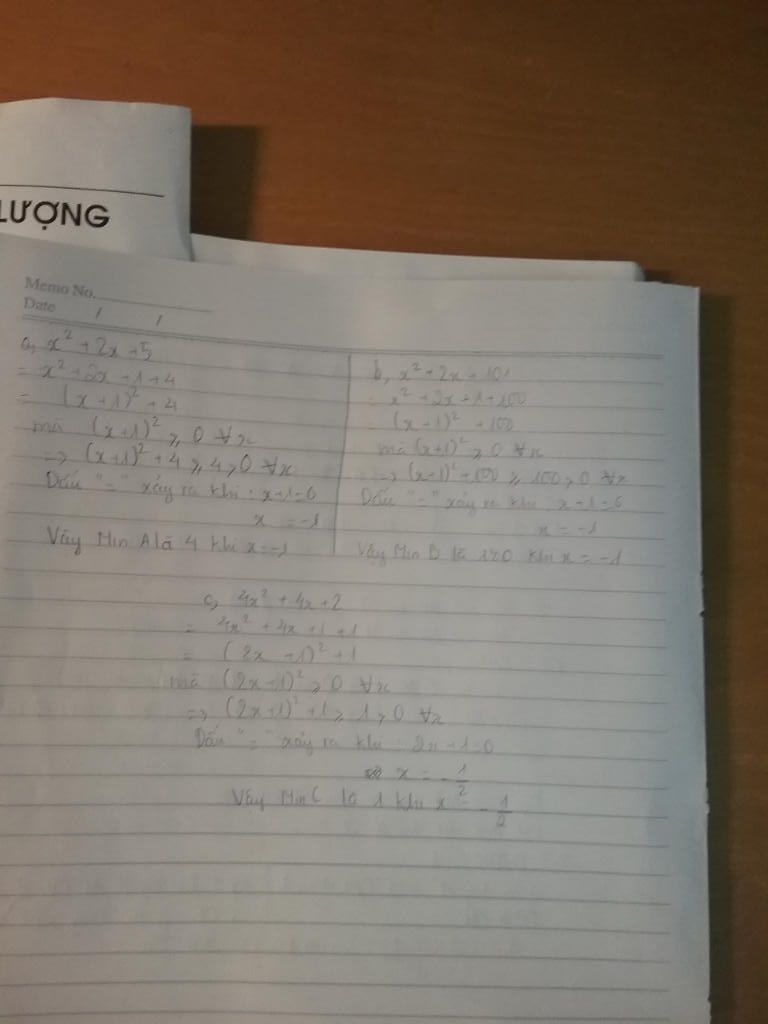 LƯỢNG
Memo No.
Date / /
a, x² + 2x + 5
= x² + 2x + 1 + 4
= (x + 1)² + 4
mà (x+1)² ⩾ 0 ∀x
=> (x+1)² + 4 ⩾ 4 > 0 ∀x
Dấu "=" xảy ra khi : x+1=0
x = -1
Vậy Min A là 4 khi x = -1
b, x² + 2x + 101
= x² + 2x + 1 + 100
= (x + 1)² + 100
mà (x+1)² ⩾ 0 ∀x
=> (x+1)² + 100 ⩾ 100 > 0 ∀x
Dấu "=" xảy ra khi : x+1=0
x = -1
Vậy Min B là 100 khi x = -1
c, 4x² + 4x + 2
= 4x² + 4x + 1 + 1
= (2x + 1)² + 1
mà (2x+1)² ⩾ 0 ∀x
=> (2x+1)² + 1 ⩾ 1 > 0 ∀x
Dấu "=" xảy ra khi : 2x + 1 = 0
x = -1/2
Vậy Min C là 1 khi x = -1/2